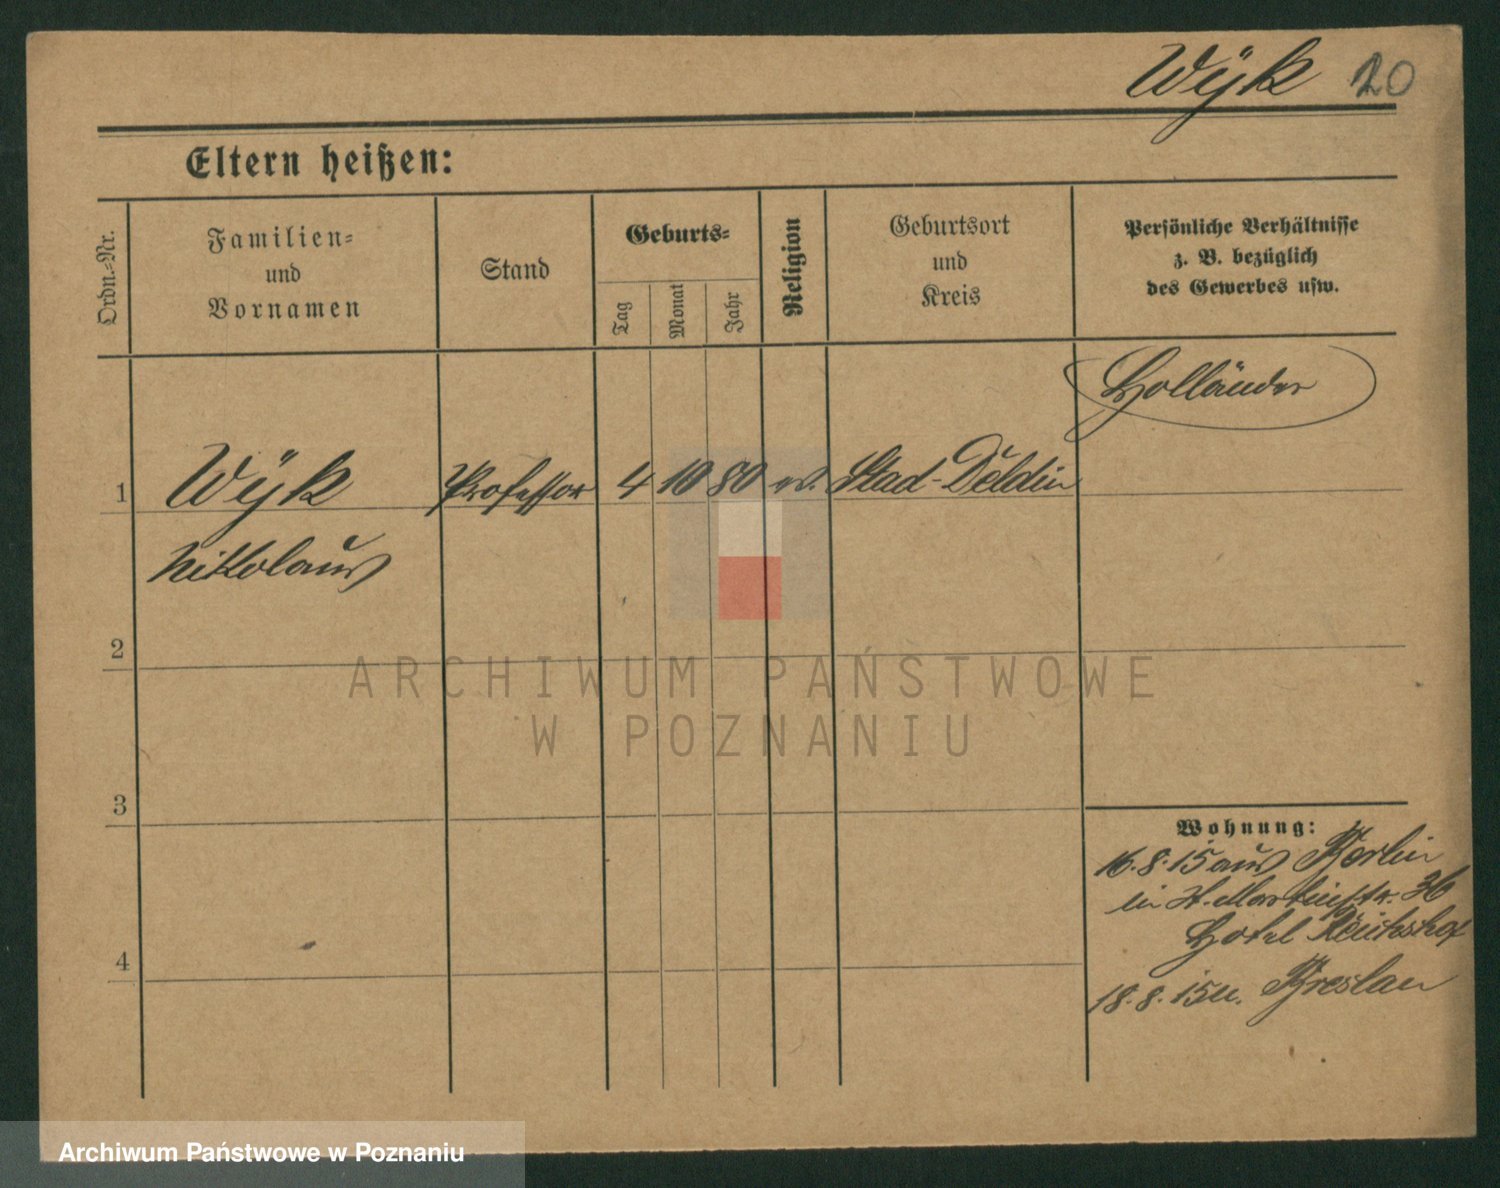 Wÿk 20
Eltern heißen:
Ordn.=Nr.
Familien=
und
Vornamen
Stand
Geburts=
Tag
Monat
Jahr
Religion
Geburtsort
und
Kreis
Persönliche Verhältnisse
z. B. bezüglich
des Gewerbes usw.
Holländer
1 Wÿk Professor 4 10 80 ev. Stad-Deldin
Nikolaus
2
3
4
Wohnung:
16.8.15 aus Berlin
in St. Martinstr. 36
Hotel Reichshof
18.8.15 n. Breslau
ARCHIWUM PAŃSTWOWE
W POZNANIU
Archiwum Państwowe w Poznaniu